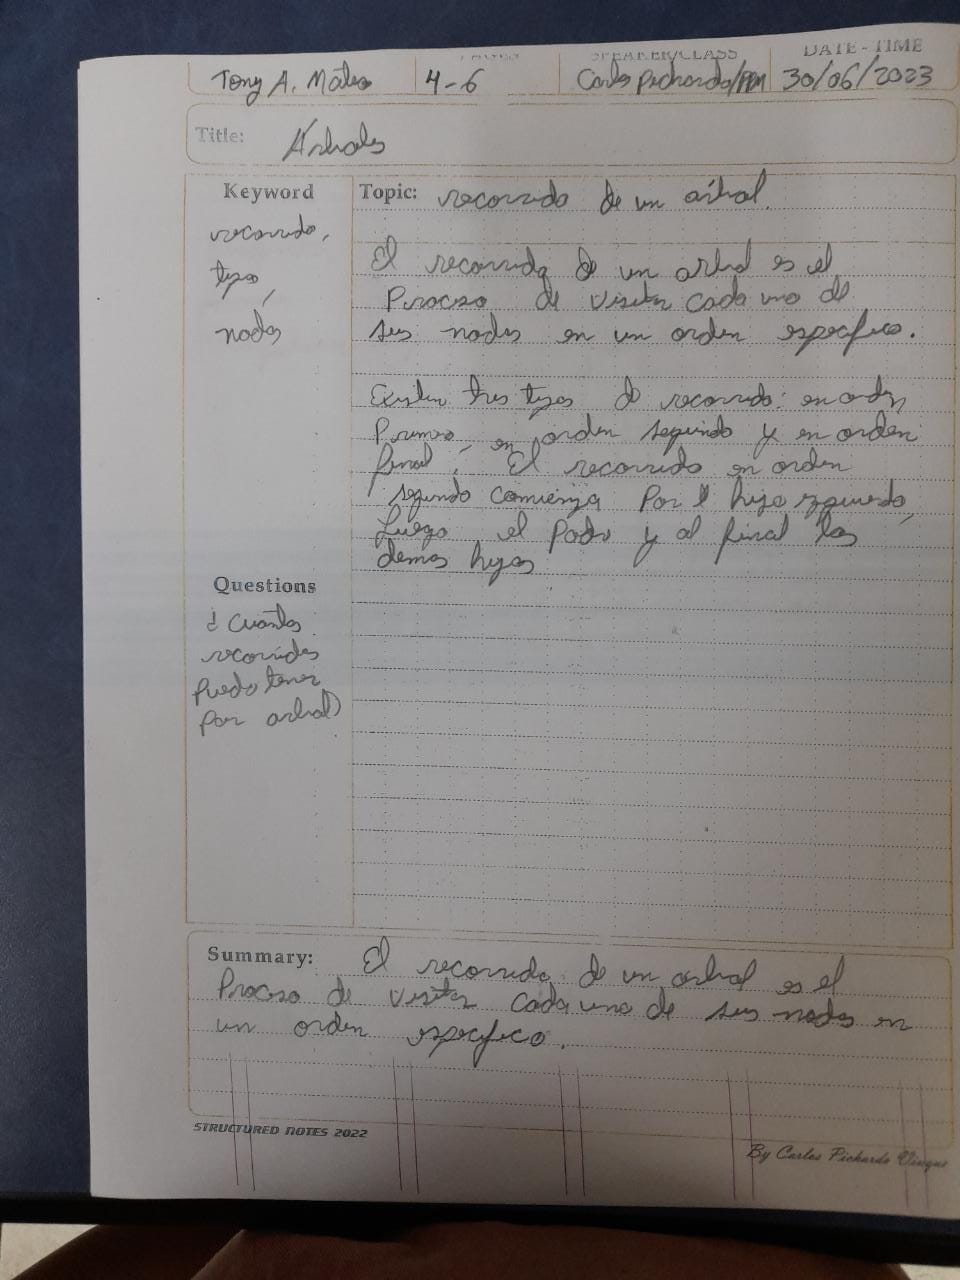 SPEAKER/CLASS DATE - TIME
Tony A. Mateo 4-6 Carlos Pichardo/PPM 30/06/2023
Title: Árboles
Keyword
recorrido,
tipo,
nodos
Topic: recorrido de un árbol.
El recorrido de un arbol es el
Proceso de visitar cada uno de
sus nodos en un orden especifico.
Existen tres tipos de recorrido: en orden
Primero, en orden segundo y en orden
final. El recorrido en orden
segundo comienza Por el hijo izquierdo,
Luego el Padre y al final los
demas hijos
Questions
¿Cuántos
recorridos
Puedo tener
por arbol?
Summary: El recorrido de un arbol es el
Proceso de visitar cada uno de sus nodos en
un orden especifico.
STRUCTURED NOTES 2022
By Carlos Pichardo Vinque